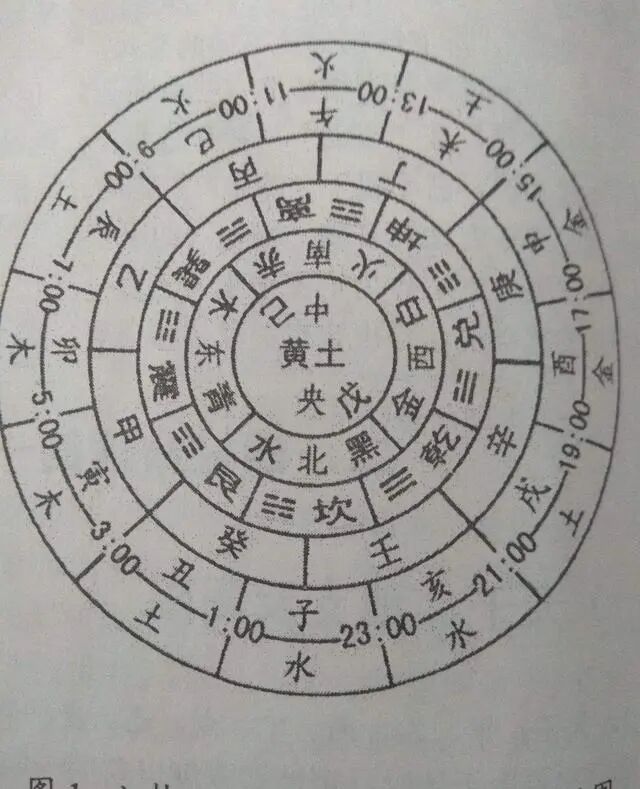 火
午
11:00
13:00
土
未
15:00
金
申
17:00
金
酉
19:00
土
戌
21:00
水
亥
23:00
水
子
1:00
土
丑
3:00
木
寅
5:00
木
卯
7:00
土
辰
9:00
火
巳
丙
丁
庚
辛
壬
癸
甲
乙
离
坤
兑
乾
坎
艮
震
巽
赤南火
白西金
黑北水
青东木
己中
黄土
央戊